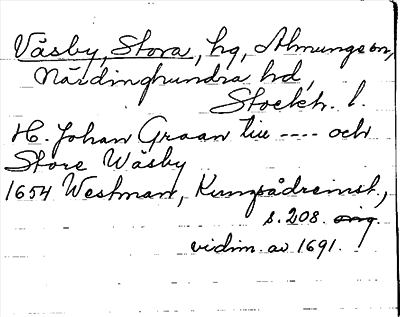 Väsby, Stora, hg, Almunge sn,
Närdinghundra hd,
Stockh. l.
H. Johan Graan till ---- och
Store Wäsby
1654 Westman, Kungsådreinst.,
s. 208. orig.
vidim. av 1691.